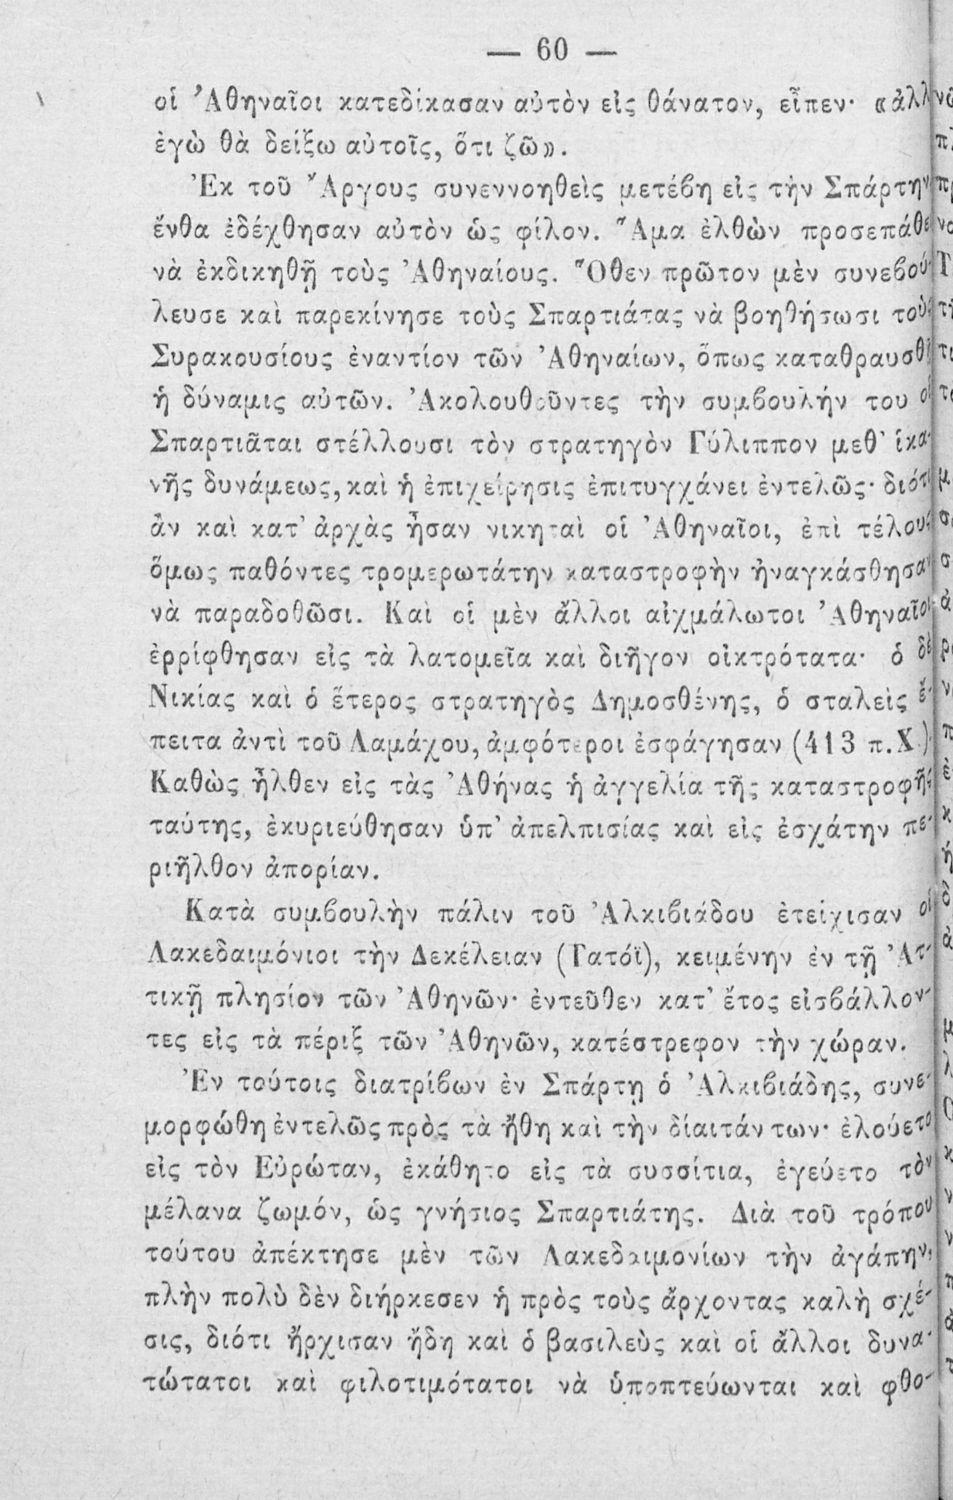 — 60 —
οἱ Ἀθηναῖοι κατεδίκασαν αὐτὸν εἰς θάνατον, εἶπεν· «ἀλλ'
ἐγὼ θὰ δείξω αὐτοῖς, ὅτι ζῶ».
Ἐκ τοῦ Ἄργους συνεννοηθεὶς μετέβη εἰς τὴν Σπάρτην
ἔνθα ἐδέχθησαν αὐτὸν ὡς φίλον. Ἅμα ἐλθὼν προσεπάθει
νὰ ἐκδικηθῇ τοὺς Ἀθηναίους. Ὅθεν πρῶτον μὲν συνεβού-
λευσε καὶ παρεκίνησε τοὺς Σπαρτιάτας νὰ βοηθήσωσι τοὺς
Συρακουσίους ἐναντίον τῶν Ἀθηναίων, ὅπως καταθραυσθῇ
ἡ δύναμις αὐτῶν. Ἀκολουθοῦντες τὴν συμβουλήν του οἱ
Σπαρτιᾶται στέλλουσι τὸν στρατηγὸν Γύλιππον μεθ' ἱκα-
νῆς δυνάμεως, καὶ ἡ ἐπιχείρησις ἐπιτυγχάνει ἐντελῶς· διότι
ἂν καὶ κατ' ἀρχὰς ἦσαν νικηταὶ οἱ Ἀθηναῖοι, ἐπὶ τέλους
ὅμως παθόντες τρομερωτάτην καταστροφὴν ἠναγκάσθησαν
νὰ παραδοθῶσι. Καὶ οἱ μὲν ἄλλοι αἰχμάλωτοι Ἀθηναῖοι
ἐρρίφθησαν εἰς τὰ λατομεῖα καὶ διῆγον οἰκτρότατα· ὁ δὲ
Νικίας καὶ ὁ ἕτερος στρατηγὸς Δημοσθένης, ὁ σταλεὶς ἔ-
πειτα ἀντὶ τοῦ Λαμάχου, ἀμφότεροι ἐσφάγησαν (413 π.Χ.)
Καθὼς ἦλθεν εἰς τὰς Ἀθήνας ἡ ἀγγελία τῆς καταστροφῆς
ταύτης, ἐκυριεύθησαν ὑπ' ἀπελπισίας καὶ εἰς ἐσχάτην πε-
ριῆλθον ἀπορίαν.
Κατὰ συμβουλὴν πάλιν τοῦ Ἀλκιβιάδου ἐτείχισαν οἱ
Λακεδαιμόνιοι τὴν Δεκέλειαν (Τατόϊ), κειμένην ἐν τῇ Ἀτ-
τικῇ πλησίον τῶν Ἀθηνῶν· ἐντεῦθεν κατ' ἔτος εἰσβάλλον-
τες εἰς τὰ πέριξ τῶν Ἀθηνῶν, κατέστρεφον τὴν χώραν.
Ἐν τούτοις διατρίβων ἐν Σπάρτῃ ὁ Ἀλκιβιάδης, συνε-
μορφώθη ἐντελῶς πρὸς τὰ ἤθη καὶ τὴν δίαιτάν των· ἐλούετο
εἰς τὸν Εὐρώταν, ἐκάθητο εἰς τὰ συσσίτια, ἐγεύετο τὸν
μέλανα ζωμόν, ὡς γνήσιος Σπαρτιάτης. Διὰ τοῦ τρόπου
τούτου ἀπέκτησε μὲν τῶν Λακεδαιμονίων τὴν ἀγάπην,
πλὴν πολὺ δὲν διήρκεσεν ἡ πρὸς τοὺς ἄρχοντας καλὴ σχέ-
σις, διότι ἤρχισαν ἤδη καὶ ὁ βασιλεὺς καὶ οἱ ἄλλοι δυνα-
τώτατοι καὶ φιλοτιμότατοι νὰ ὑποπτεύωνται καὶ φθο-